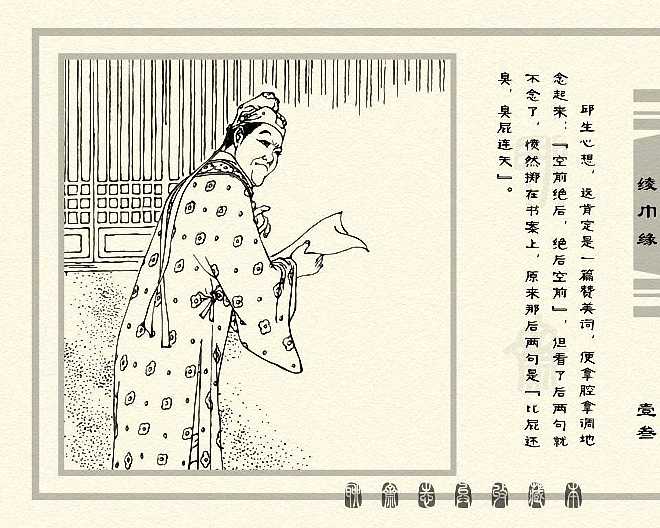 邱生心想，这肯定是一篇赞美词，便拿腔拿调地
念起来：『空前绝后，绝后空前』，但看了后两句就
不念了，愤然掷在书案上，原来那后两句是『比屁还
臭，臭屁连天』。
绫巾缘
壹叁
聊斋志异收藏本